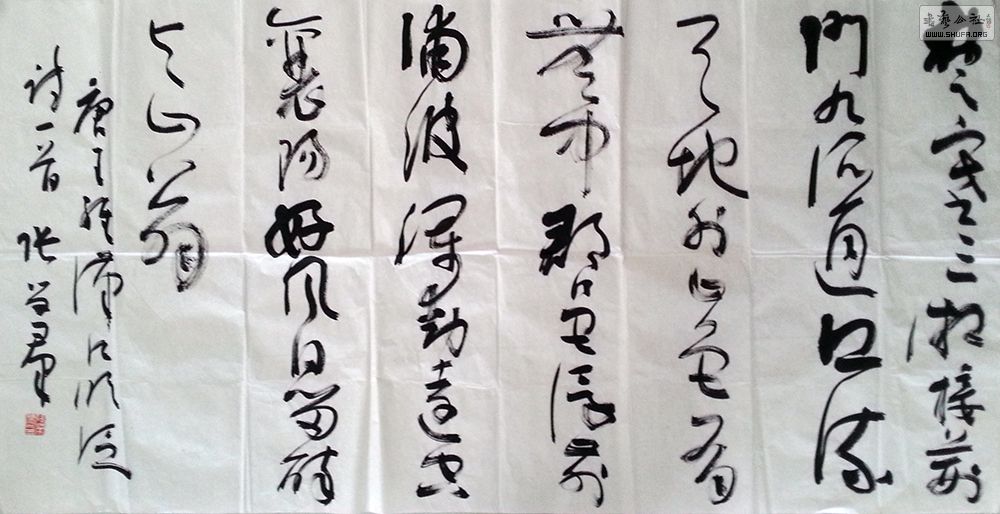 楚塞三湘接荆
门九派通江流
天地外山色有
无中郡邑浮前
浦波澜动远空
襄阳好风日留醉
与山翁
唐王维汉江临泛
诗一首 张学军
书艺公社
WWW.SHUFA.ORG